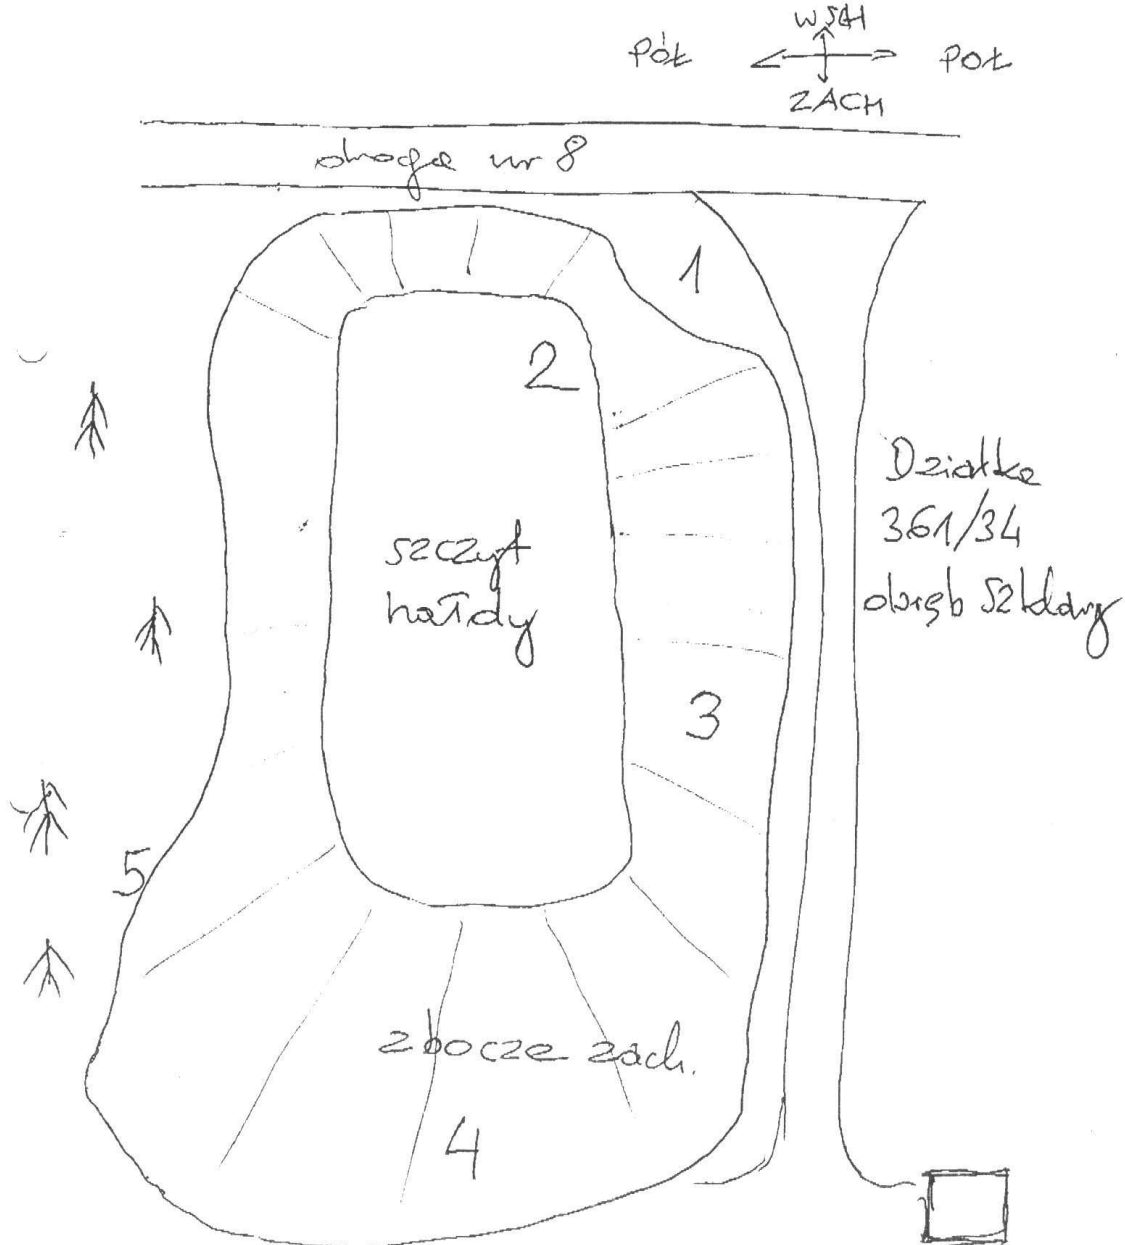 WSCH
PÓŁ POŁ
ZACH
droga nr 8
1
2
Działka
361/34
obręb Szklary
szczyt
hałdy
3
5
zbocze zach.
4